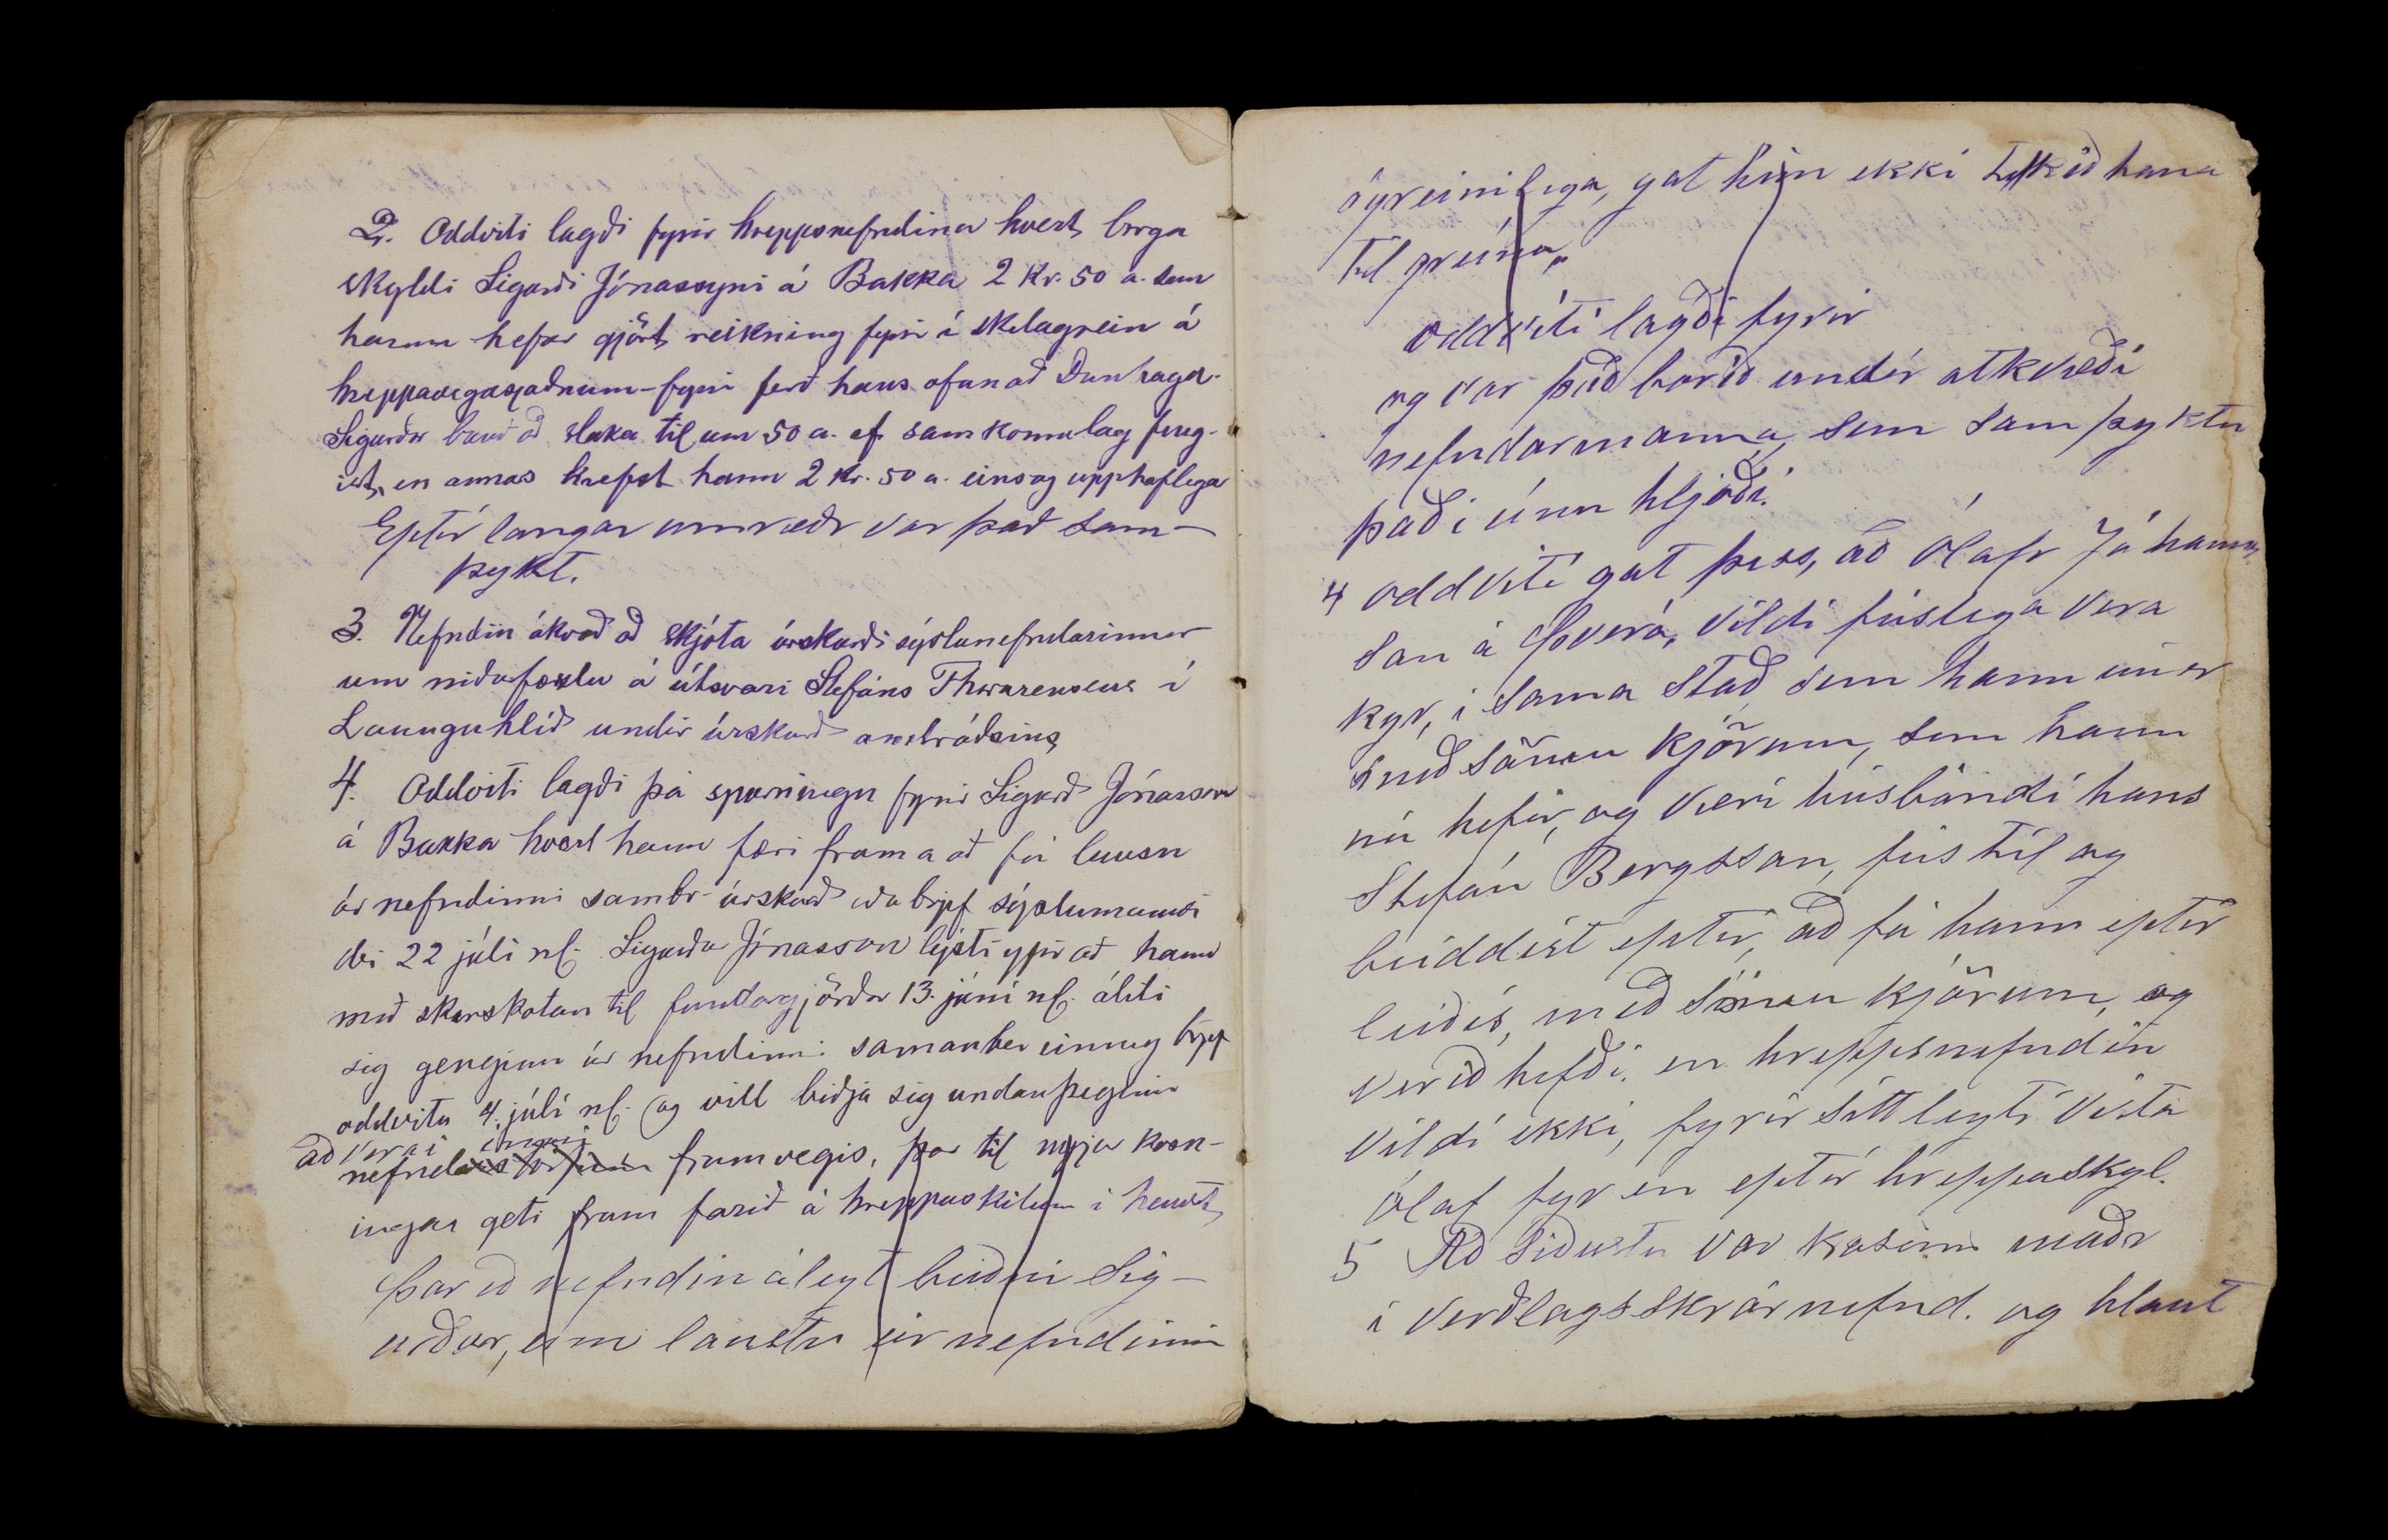 2. Oddviti lagði fyrir hreppsnefndina hvert borga
skyldi Sigurði Jónassyni á Bakka 2 Kr. 50 a. sem
hann hefur gjört reikning fyrir í skilagrein á
hreppavegasjóðnum - fyrir ferð hans ofan að Dunhaga.
Sigurður bauð að slaka til um 50 a. ef samkomulag feng-
ist, en annas krefst hann 2 Kr. 50 a. einsog upphaflega
Eptir langar umræðr var það sam-
þykt.
3. Nefndin ákvað að skjóta úrskurði sýslunefndarinnar
um niðurfærslu á útsvari Stefáns Thorarensens í
Lönguhlíð undir úrskurð amtsráðsins
4. Oddviti lagði þá spurningu fyrir Sigurð Jónasson
á Bakka hvert hann færi fram a að fá lausn
úr nefndinni sambr. úrskurð eða brjef sýslumanns
dei 22 júlí nl. Sigurður Jónasson lýsti yfir að hann
með skýrskotan til fundargjörðar 13. júní nl. áliti
sig genginn úr nefndinni samanber einnig brjef
oddvita 4. júlí nl. og vill biðja sig undanþeginn
að vera í
nefnd framvegis, þar til nýjar kosn-
ingar geti fram farið á hreppaskilum í haust,
Þar eð nefndin áleyt beiðni Sig-
urðar, um lausn úr nefndinni
ógreinilega, gat hún ekki tekið hana
til greina.
oddviti lagði fyrir
og var það borið undir atkvæði
nefndarmanna, sem samþyktu
það í einu hljóði.
4 oddviti gat þess, að Ólafr Jóhanns
son á Þverá, vildi fúslega vera
kyr, í sama stað, sem hann nú er
með sömu kjörum, sem hann
nú hefir, og væri húsbóndi hans
Stefán Bergsson, fús til og
beiddist eptir, að fá hann eptir
leiðis, með sömu kjörum, og
verið hefði. en hreppsnefndin
vildi ekki, fyrir sitt leyti vista
Ólaf fyr en eptir hreppaskyl.
5 Að síðustu var kosinn maðr
í verðlagsskrárnefnd. og hlaut